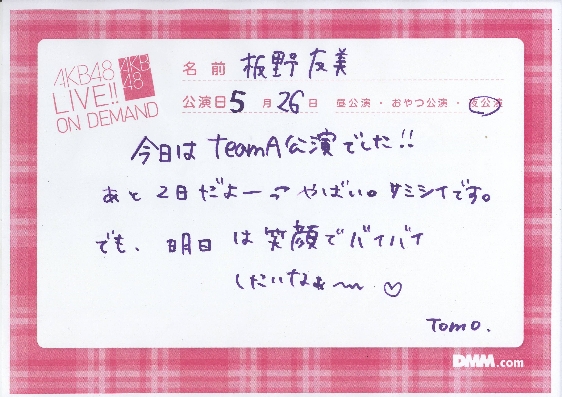 AKB48
LIVE!!
ON DEMAND
AKB
48
名前 板野友美
公演日 5月26日 昼公演・おやつ公演・夜公演
今日はteamA公演でした!!
あと2日だよー→やばい。サミシイです。
でも、明日は笑顔でバイバイ
したいなぁ〜 ♡
Tomo.
DMM.com